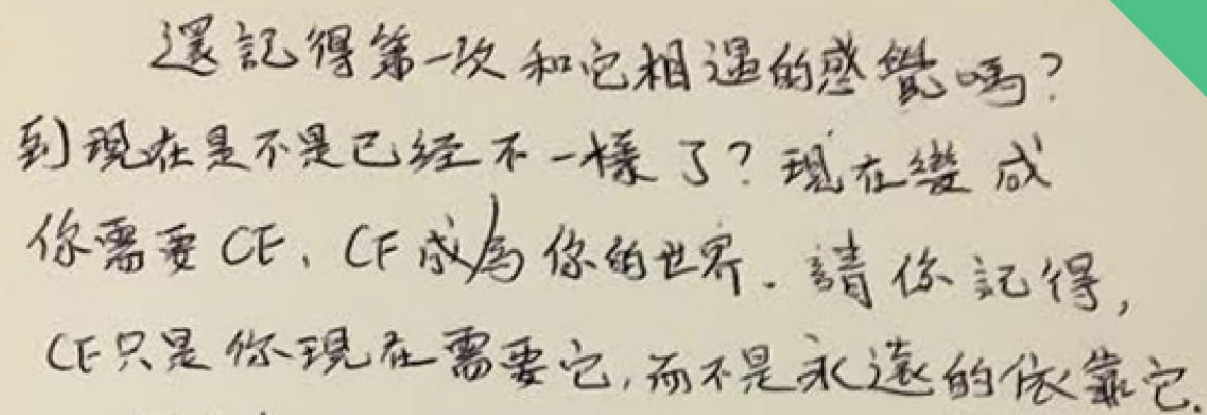 還記得第一次和它相遇的感覺嗎?
到現在是不是已經不一樣了?現在變成
你需要CF、CF成為你的世界.請你記得,
CF只是你現在需要它,而不是永遠的依靠它.